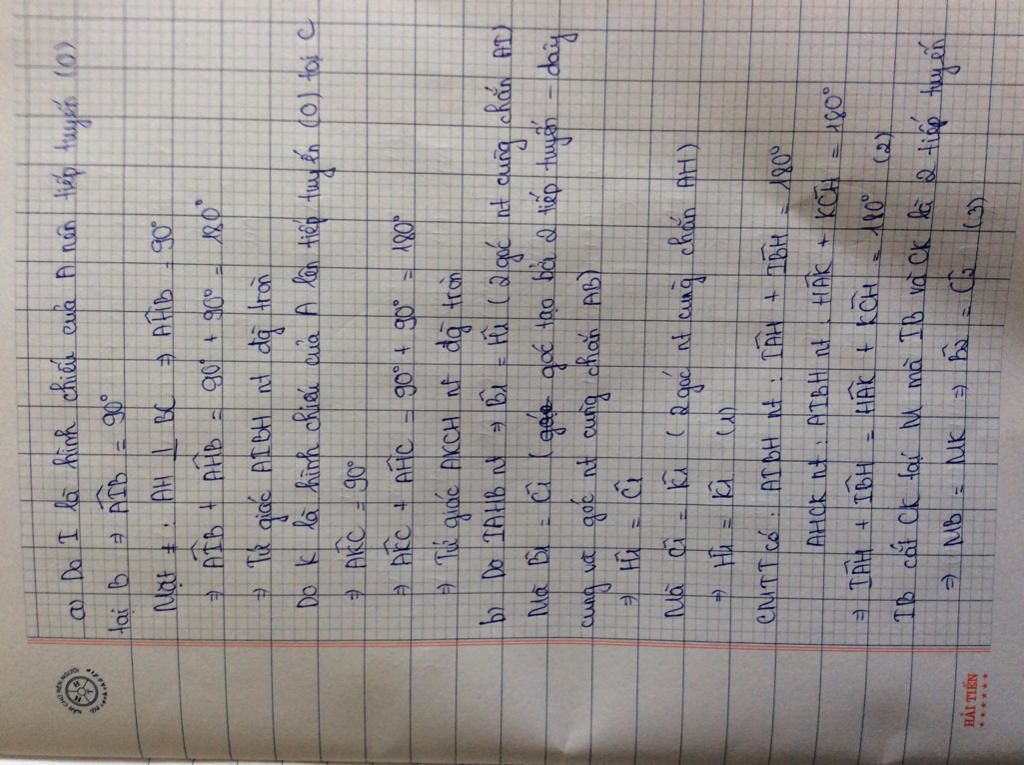 a) Do I là hình chiếu của A nên tiếp tuyến (O)
tại B ⇒ AÎB = 90°
Mặt ≠ : AH ⊥ BC ⇒ AĤB = 90°
⇒ AÎB + AĤB = 90° + 90° = 180°
⇒ Tứ giác AIBH nt đg tròn
Do K là hình chiếu của A lên tiếp tuyến (O) tại C
⇒ AK̂C = 90°
⇒ AK̂C + AĤC = 90° + 90° = 180°
⇒ Tứ giác AKCH nt đg tròn
b) Do IAHB nt ⇒ B̂1 = Ĥ1 ( 2 góc nt cùng chắn AI)
Mà B̂1 = Ĉ1 ( góc tạo bởi 2 tiếp tuyến – dây
cung và góc nt cùng chắn AB)
⇒ Ĥ1 = Ĉ1
Mà Ĉ1 = K̂1 ( 2 góc nt cùng chắn AH)
⇒ Ĥ1 = K̂1 (1)
CMTT có : AIBH nt : IÂH + IB̂H = 180°
AHCK nt : AIBH nt : HÂK + KĈH = 180°
⇒ IÂH + IB̂H = HÂK + KĈH = 180° (2)
IB cắt CK tại M mà IB và CK là 2 tiếp tuyến
⇒ MB = MK ⇒ B̂2 = Ĉ2 (3)
HẢI TIẾN